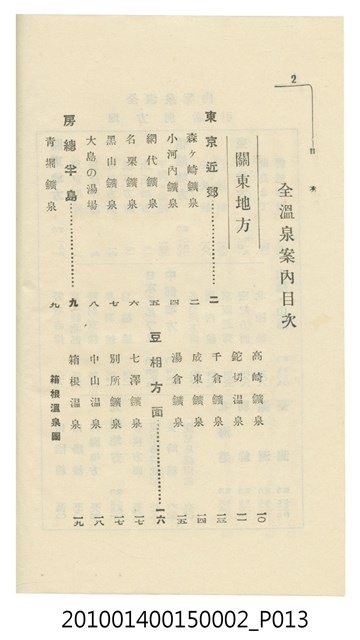 2
目次
全溫泉案內目次
關東地方
東京近郊……………二
森ヶ崎鑛泉 二
小河內鑛泉 四
網代鑛泉 五
名栗鑛泉 六
黑山鑛泉 七
大島の湯場 八
房總半島……………九
青堀鑛泉 九
高崎鑛泉 一〇
鉈切溫泉 一一
千倉鑛泉 一三
成東鑛泉 一四
湯倉鑛泉 一五
豆相方面……………一六
七澤鑛泉 一七
別所鑛泉 一七
中山溫泉 一八
箱根溫泉 一九
箱根溫泉圖
201001400150002_P013